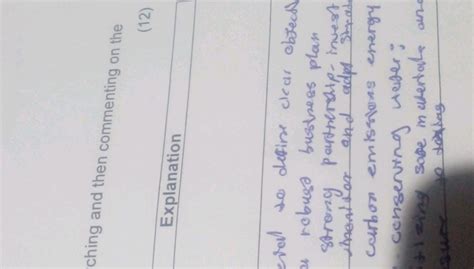 ching and then commenting on the
(12)
Explanation
to define clear
robust business plan
strong partnership, invest
monitor and adpt
carbon emissions energy
conserving water;
safe materials and
to